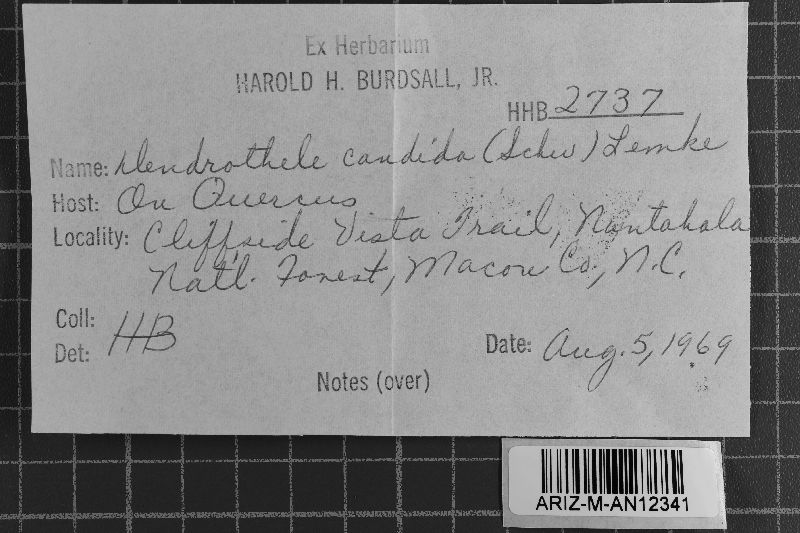 Ex Herbarium
HAROLD H. BURDSALL, JR.
HHB 2737
Name: Dendrothele candida (Schw) Lemke
Host: On Quercus
Locality: Cliffside Vista Trail, Nantahala
Nat'l. Forest, Macon Co., N.C.
Coll:
Det: HB
Date: Aug. 5, 1969
Notes (over)
ARIZ-M-AN12341